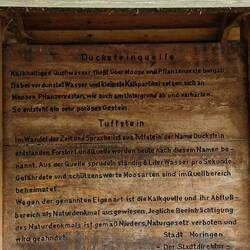 Ducksteinquelle
Kalkhaltiges Quellwasser fließt über Moose und Pflanzenreste bergab.
Dabei verdunstet Wasser und kleinste Kalkpartikel setzen sich an
Moosen, Pflanzenresten, wie auch am Untergrund ab und verhärten.
So entsteht ein sehr poröses Gestein
Tuffstein
Im Wandel der Zeit und Sprache ist aus Tuffstein der Name Duckstein
entstanden. Forstort und Quelle werden heute nach diesem Namen be-
nannt. Aus der Quelle sprudeln ständig 6 Liter Wasser pro Sekunde
Gefährdete und schützenswerte Moosarten sind im Quellbereich
beheimatet.
Wegen der genannten Eigenart ist die Kalkquelle und ihr Abfluß-
bereich als Naturdenkmal ausgewiesen. Jegliche Beeinträchtigung
des Naturdenkmals ist gemäß Nieders. Naturgesetz verboten und
wird geahndet.
Stadt Moringen
- Der Stadtdirektor -